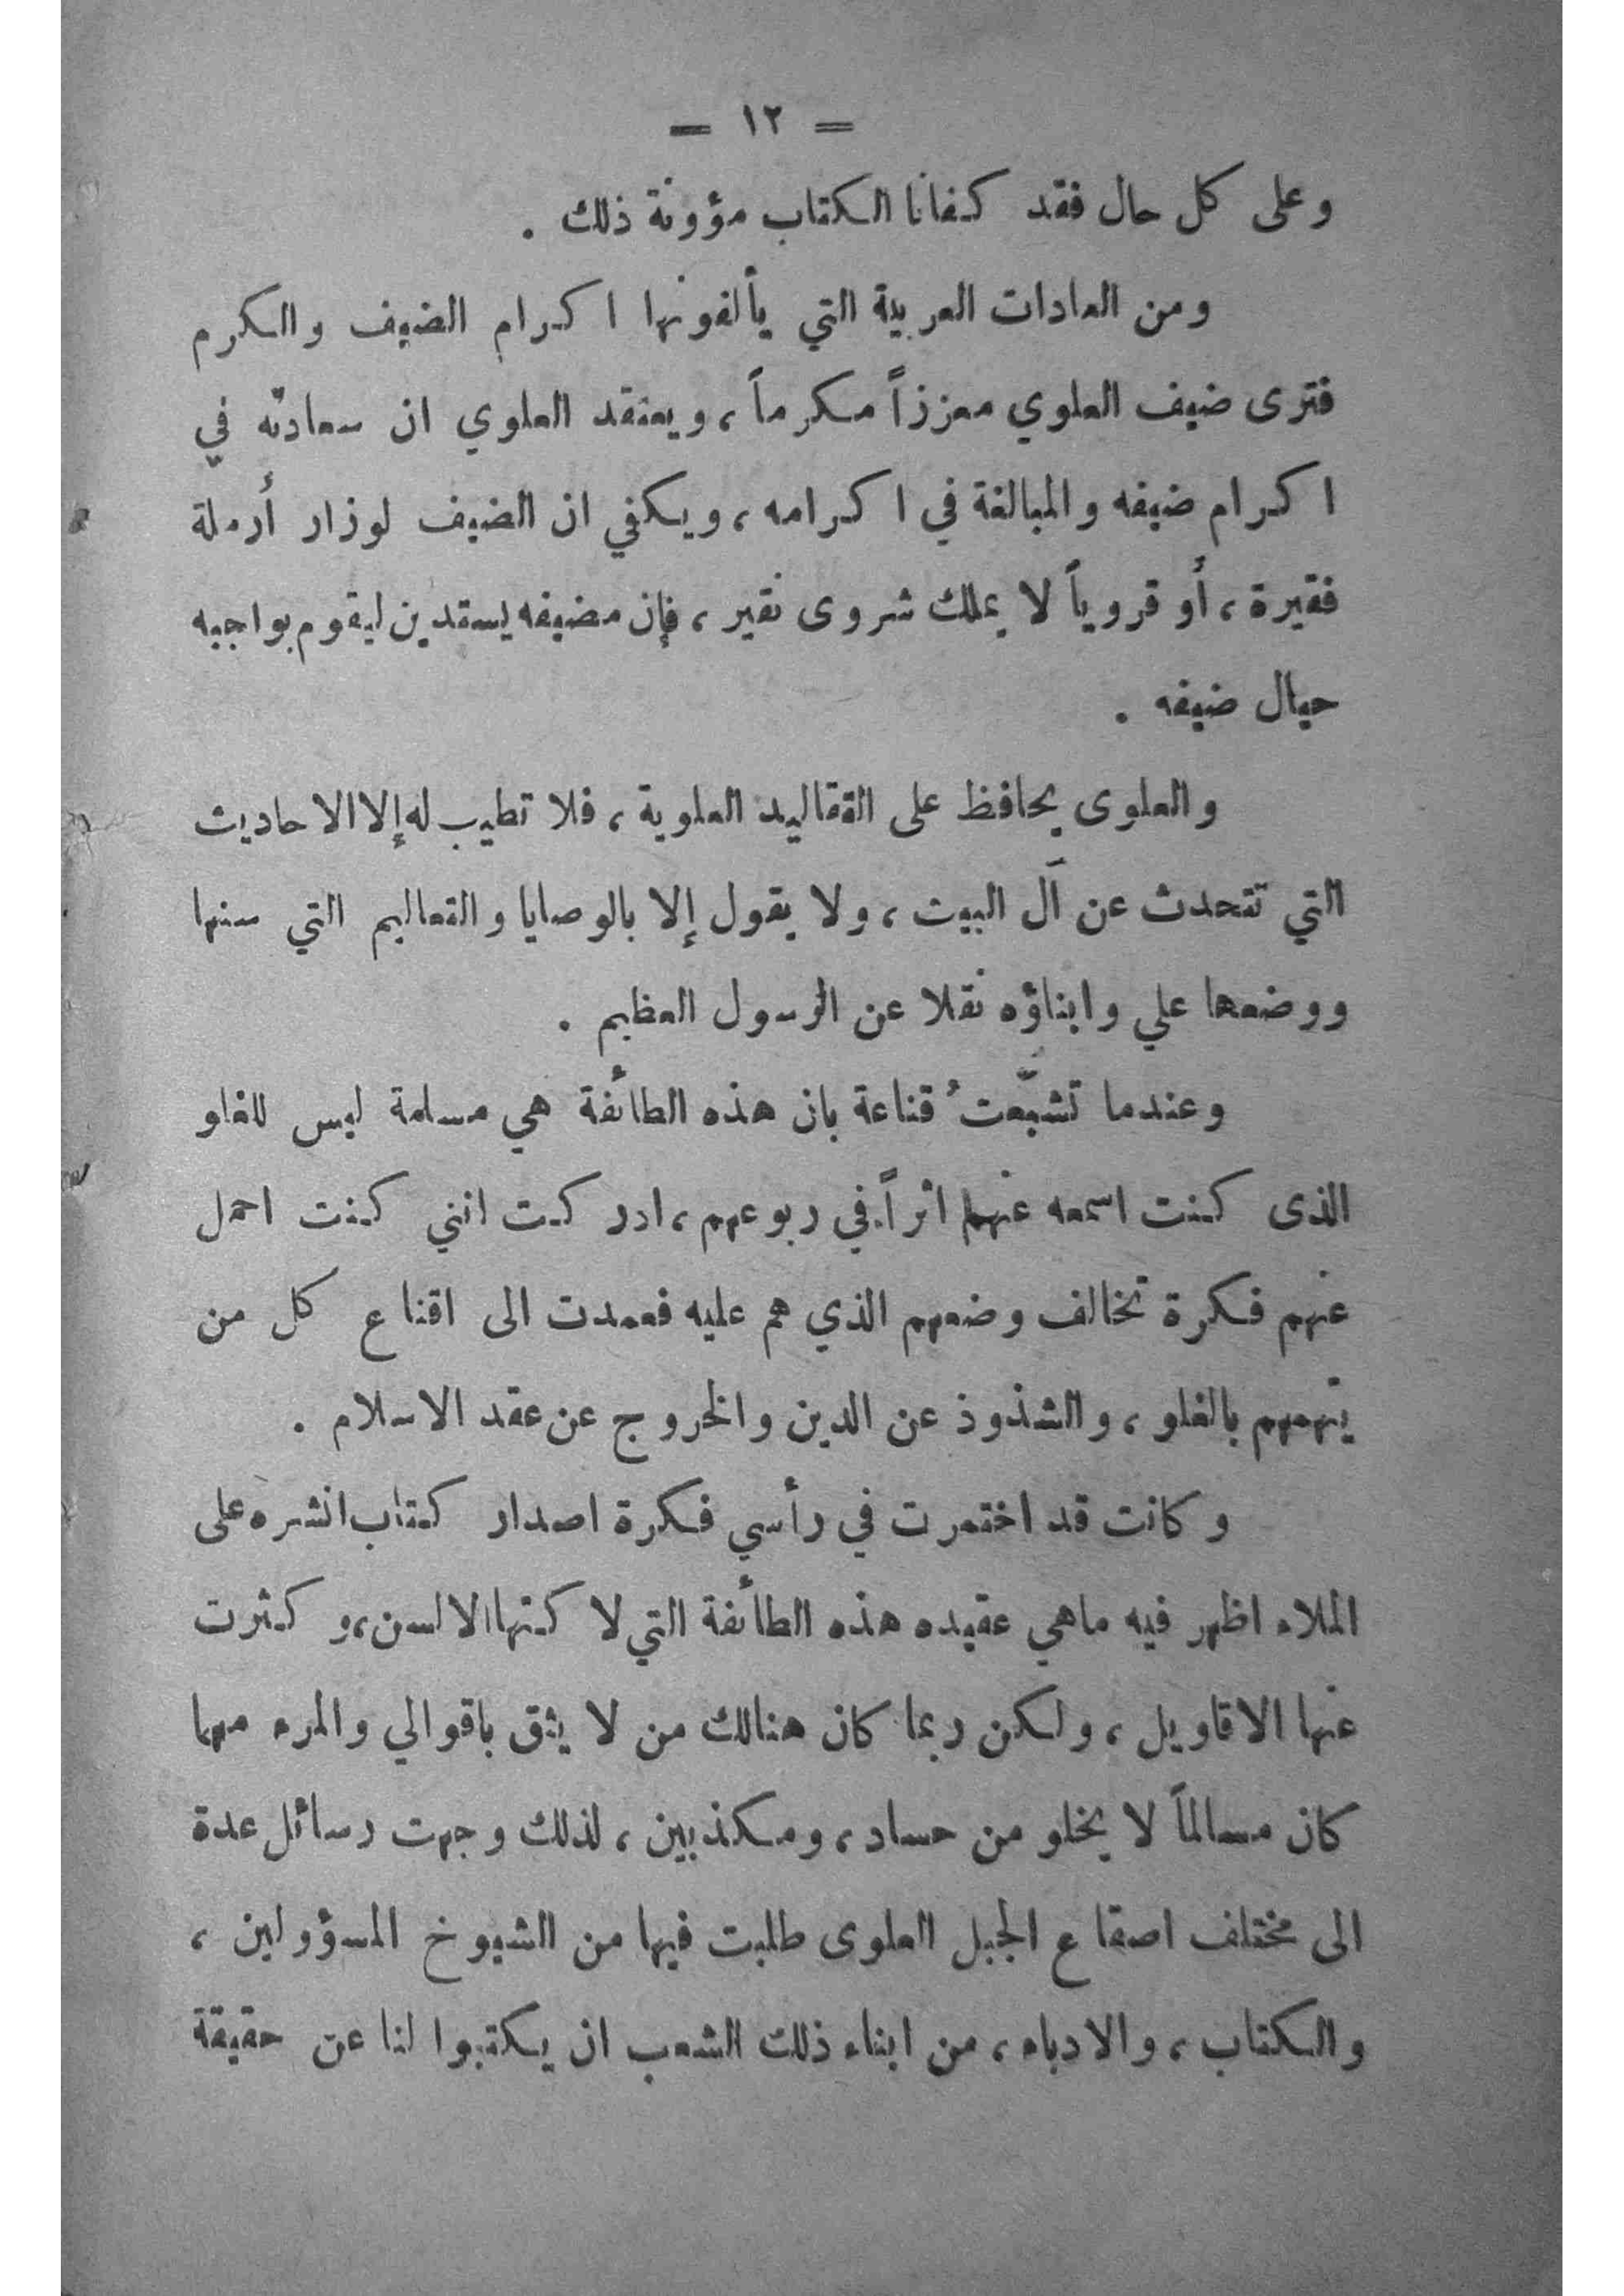 = ١٢ =
وعلى كل حال فقد كفانا الكتاب مؤونة ذلك .
ومن العادات العربية التي يألفونها اكرام الضيف والكرم
فترى ضيف العلوي معززاً مكرماً ، ويعتقد العلوي ان سعادته في
اكرام ضيفه والمبالغة في اكرامه ، ويكفي ان الضيف لوزار أرملة
فقيرة ، أو قروياً لا يملك شروى نقير ، فإن مضيفه يستدين ليقوم بواجبه
حيال ضيفه .
والعلوى يحافظ على التقاليد العلوية ، فلا تطيب له إلا الاحاديث
التي تتحدث عن آل البيت ، ولا يقول إلا بالوصايا والتعاليم التي سنها
ووضعها علي وابناؤه نقلا عن الرسول العظيم .
وعندما تشبّعتُ قناعة بان هذه الطائفة هي مسلمة ليس للغلو
الذى كنت اسمعه عنهم اثراً في ربوعهم ، ادركت انني كنت احمل
عنهم فكرة تخالف وضعهم الذي هم عليه فعمدت الى اقناع كل من
يتهمهم بالغلو ، والشذوذ عن الدين والخروج عن عقد الاسلام .
وكانت قد اختمرت في رأسي فكرة اصدار كتاب انشره على
الملاء اظهر فيه ماهي عقيده هذه الطائفة التي لاكتها الالسن ، وكثرت
عنها الاقاويل ، ولكن ربما كان هنالك من لا يثق باقوالي والمرء مهما
كان مسالماً لا يخلو من حساد ، ومكذبين ، لذلك وجهت رسائل عدة
الى مختلف اصقاع الجبل العلوى طلبت فيها من الشيوخ المسؤولين ،
والكتاب ، والادباء ، من ابناء ذلك الشعب ان يكتبوا لنا عن حقيقة